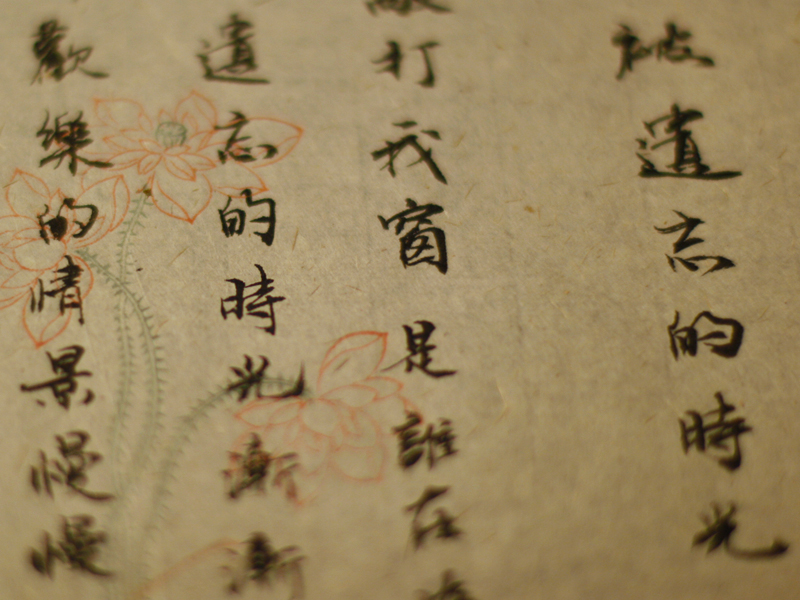 被遺忘的時光
打我窗 是誰在
遺忘的時光漸漸
歡樂的情景慢慢